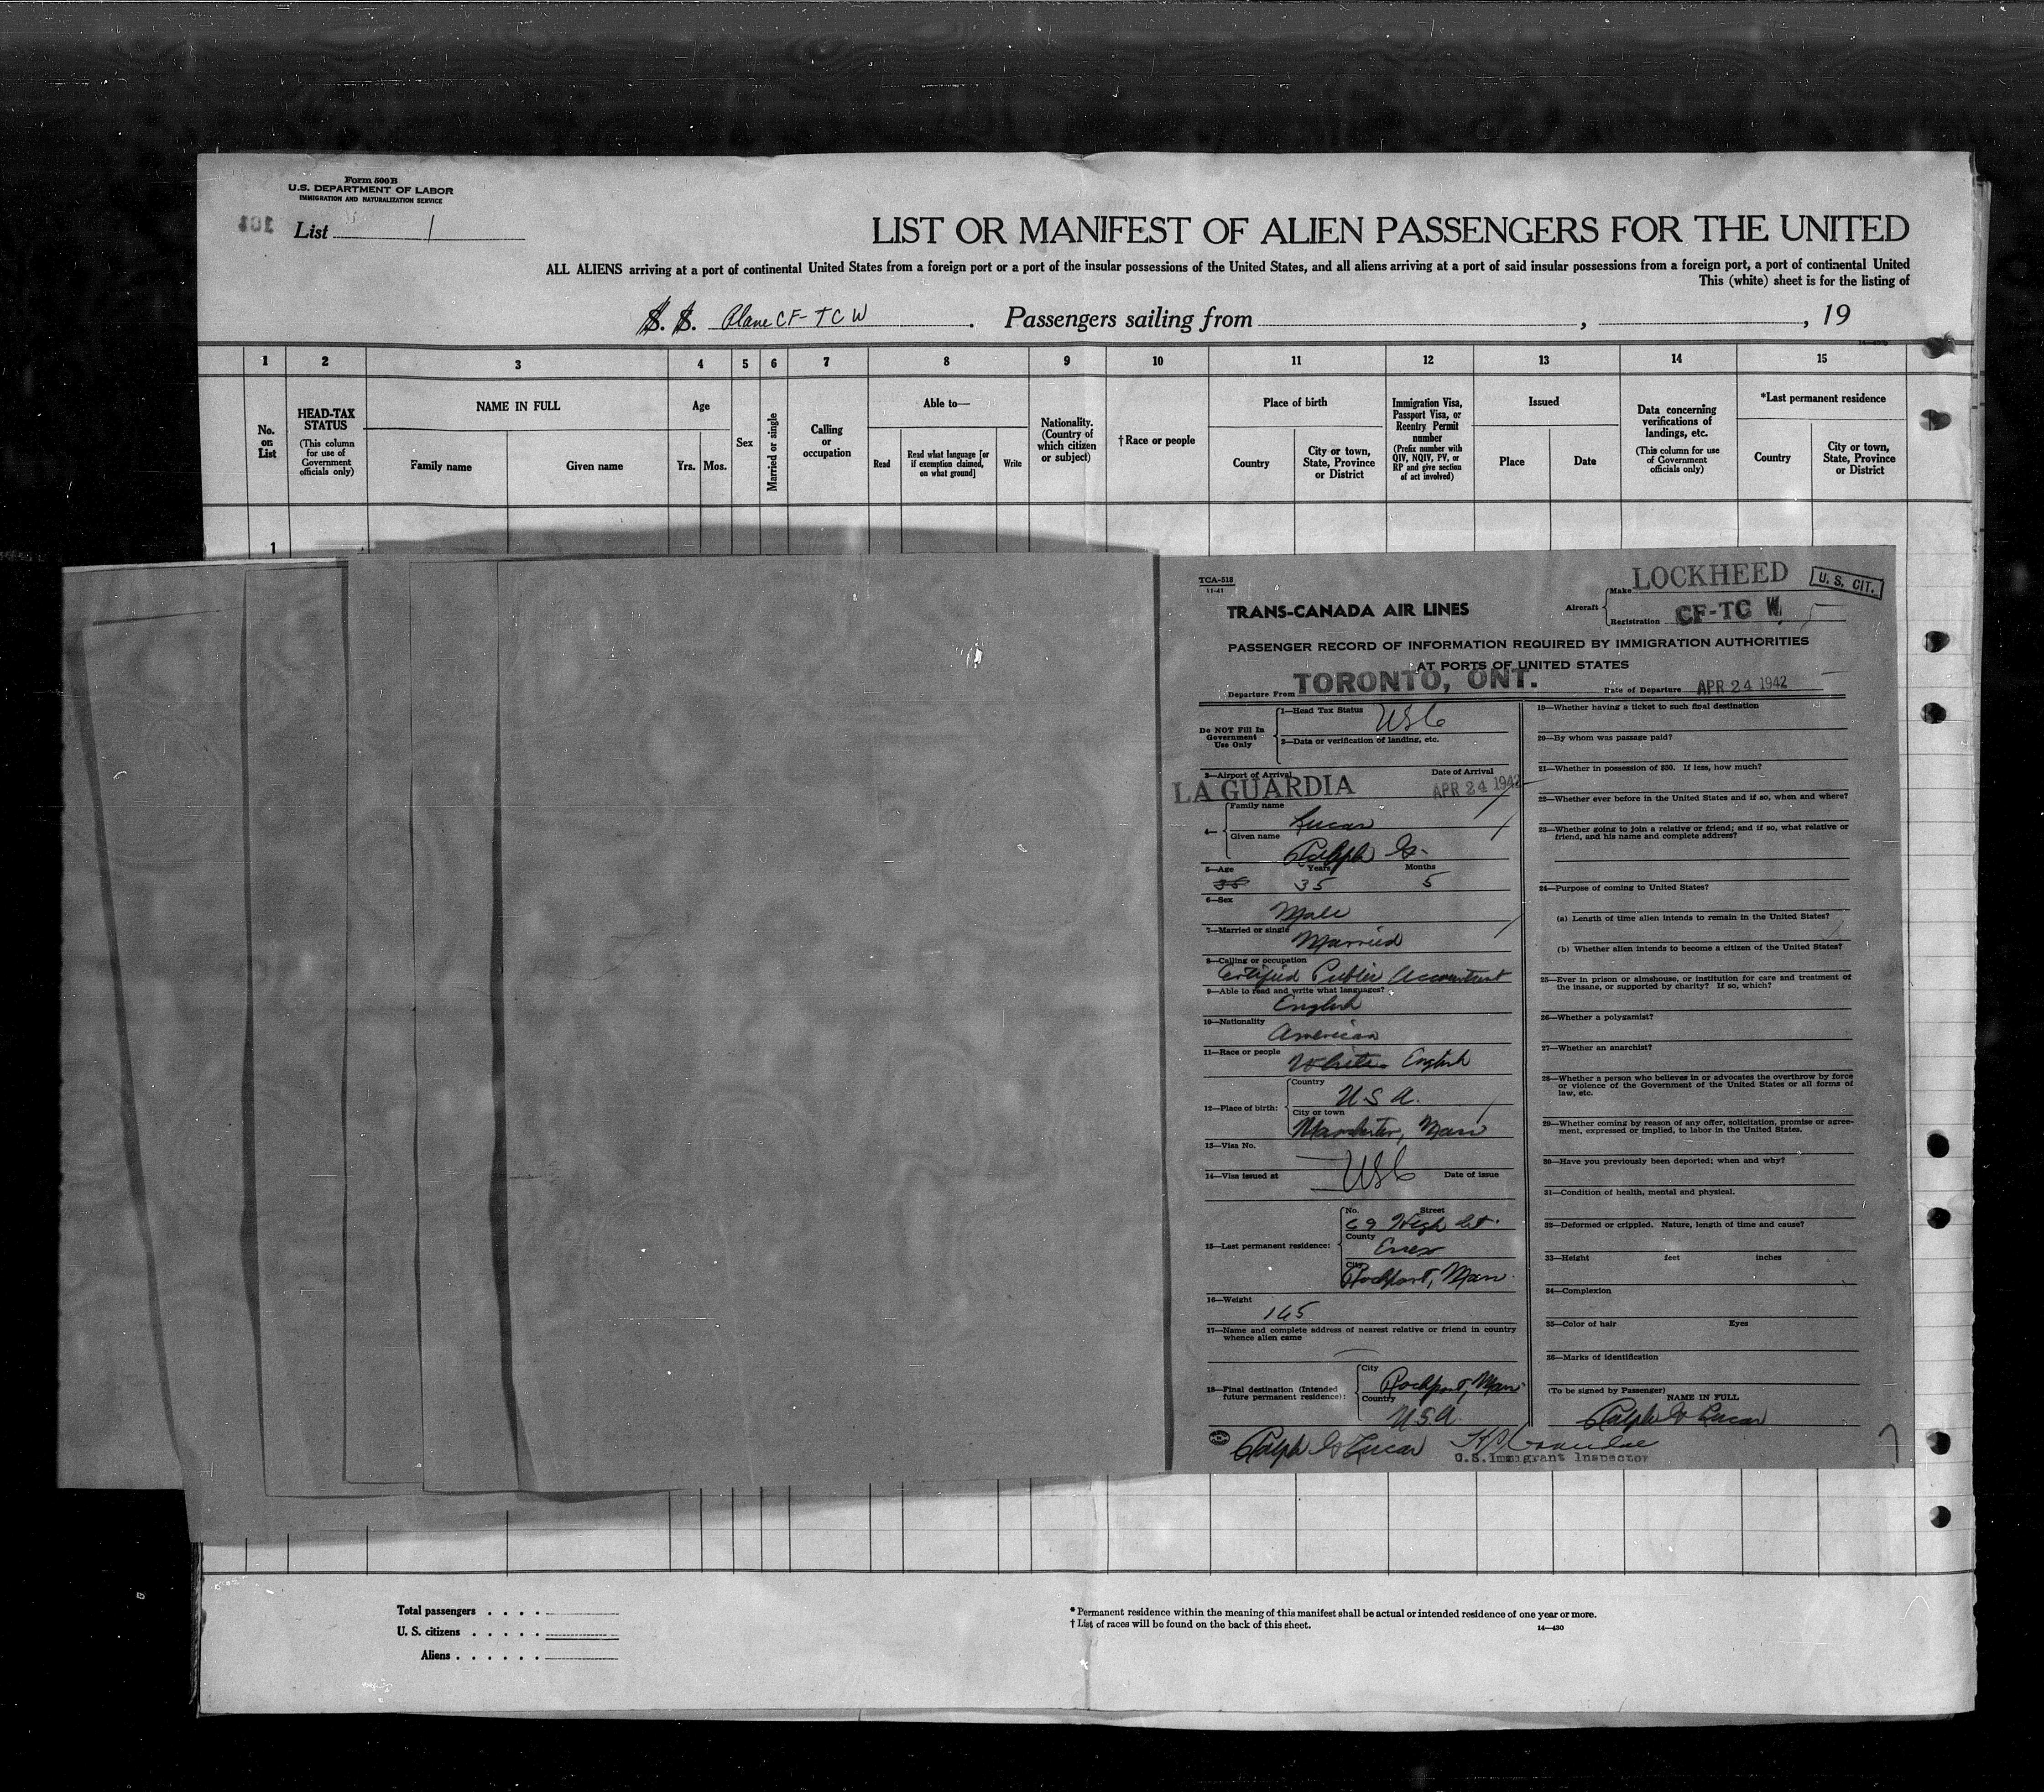 Form 500 B
U.S. DEPARTMENT OF LABOR
IMMIGRATION AND NATURALIZATION SERVICE
List 1
LIST OR MANIFEST OF ALIEN PASSENGERS FOR THE UNITED
ALL ALIENS arriving at a port of continental United States from a foreign port or a port of the insular possessions of the United States, and all aliens arriving at a port of said insular possessions from a foreign port, a port of continental United
This (white) sheet is for the listing of
S. S. Plane CF-TCW. Passengers sailing from , , 19
1 2 3 4 5 6 7 8 9 10 11 12 13 14 15
No. on List
HEAD-TAX STATUS
(This column for use of Government officials only)
NAME IN FULL
Family name
Given name
Age
Yrs. Mos.
Sex
Married or single
Calling or occupation
Able to—
Read
Read what language [or if exemption claimed, on what ground]
Write
Nationality. (Country of which citizen or subject)
†Race or people
Place of birth
Country
City or town, State, Province or District
Immigration Visa, Passport Visa, or Reentry Permit number
(Prefix number with QIV, NQIV, PV, or RP and give section of act involved)
Issued
Place
Date
Data concerning verifications of landings, etc.
(This column for use of Government officials only)
*Last permanent residence
Country
City or town, State, Province or District
1
TCA-518
11-41
TRANS-CANADA AIR LINES
Aircraft
Make LOCKHEED
U. S. CIT.
Registration CF-TC W
PASSENGER RECORD OF INFORMATION REQUIRED BY IMMIGRATION AUTHORITIES
AT PORTS OF UNITED STATES
Departure From TORONTO, ONT.
Date of Departure APR 24 1942
Do NOT Fill In Government Use Only
1—Head Tax Status USC
2—Data or verification of landing, etc.
3—Airport of Arrival Date of Arrival
LA GUARDIA APR 24 1942
4—
Family name
Lucas
Given name
Ralph G.
5—Age Years Months
35 35 5
6—Sex
Male
7—Married or single
Married
8—Calling or occupation
Certified Public Accountant
9—Able to read and write what languages?
English
10—Nationality
American
11—Race or people
White English
12—Place of birth:
Country
U S A.
City or town
Manchester, Mass
13—Visa No.
14—Visa issued at USC Date of issue
15—Last permanent residence:
No. Street
69 High St.
County
Essex
City
Rockport, Mass.
16—Weight
165
17—Name and complete address of nearest relative or friend in country whence alien came
18—Final destination (Intended future permanent residence):
City
Rockport, Mass
Country
U.S.A.
Ralph G Lucas
U.S. Immigrant Inspector
19—Whether having a ticket to such final destination
20—By whom was passage paid?
21—Whether in possession of $50. If less, how much?
22—Whether ever before in the United States and if so, when and where?
23—Whether going to join a relative or friend; and if so, what relative or friend, and his name and complete address?
24—Purpose of coming to United States?
(a) Length of time alien intends to remain in the United States?
(b) Whether alien intends to become a citizen of the United States?
25—Ever in prison or almshouse, or institution for care and treatment of the insane, or supported by charity? If so, which?
26—Whether a polygamist?
27—Whether an anarchist?
28—Whether a person who believes in or advocates the overthrow by force or violence of the Government of the United States or all forms of law, etc.
29—Whether coming by reason of any offer, solicitation, promise or agreement, expressed or implied, to labor in the United States.
30—Have you previously been deported; when and why?
31—Condition of health, mental and physical.
32—Deformed or crippled. Nature, length of time and cause?
33—Height feet inches
34—Complexion
35—Color of hair Eyes
36—Marks of identification
(To be signed by Passenger) NAME IN FULL
Ralph G Lucas
7
Total passengers
U. S. citizens
Aliens
* Permanent residence within the meaning of this manifest shall be actual or intended residence of one year or more.
† List of races will be found on the back of this sheet.
14—430